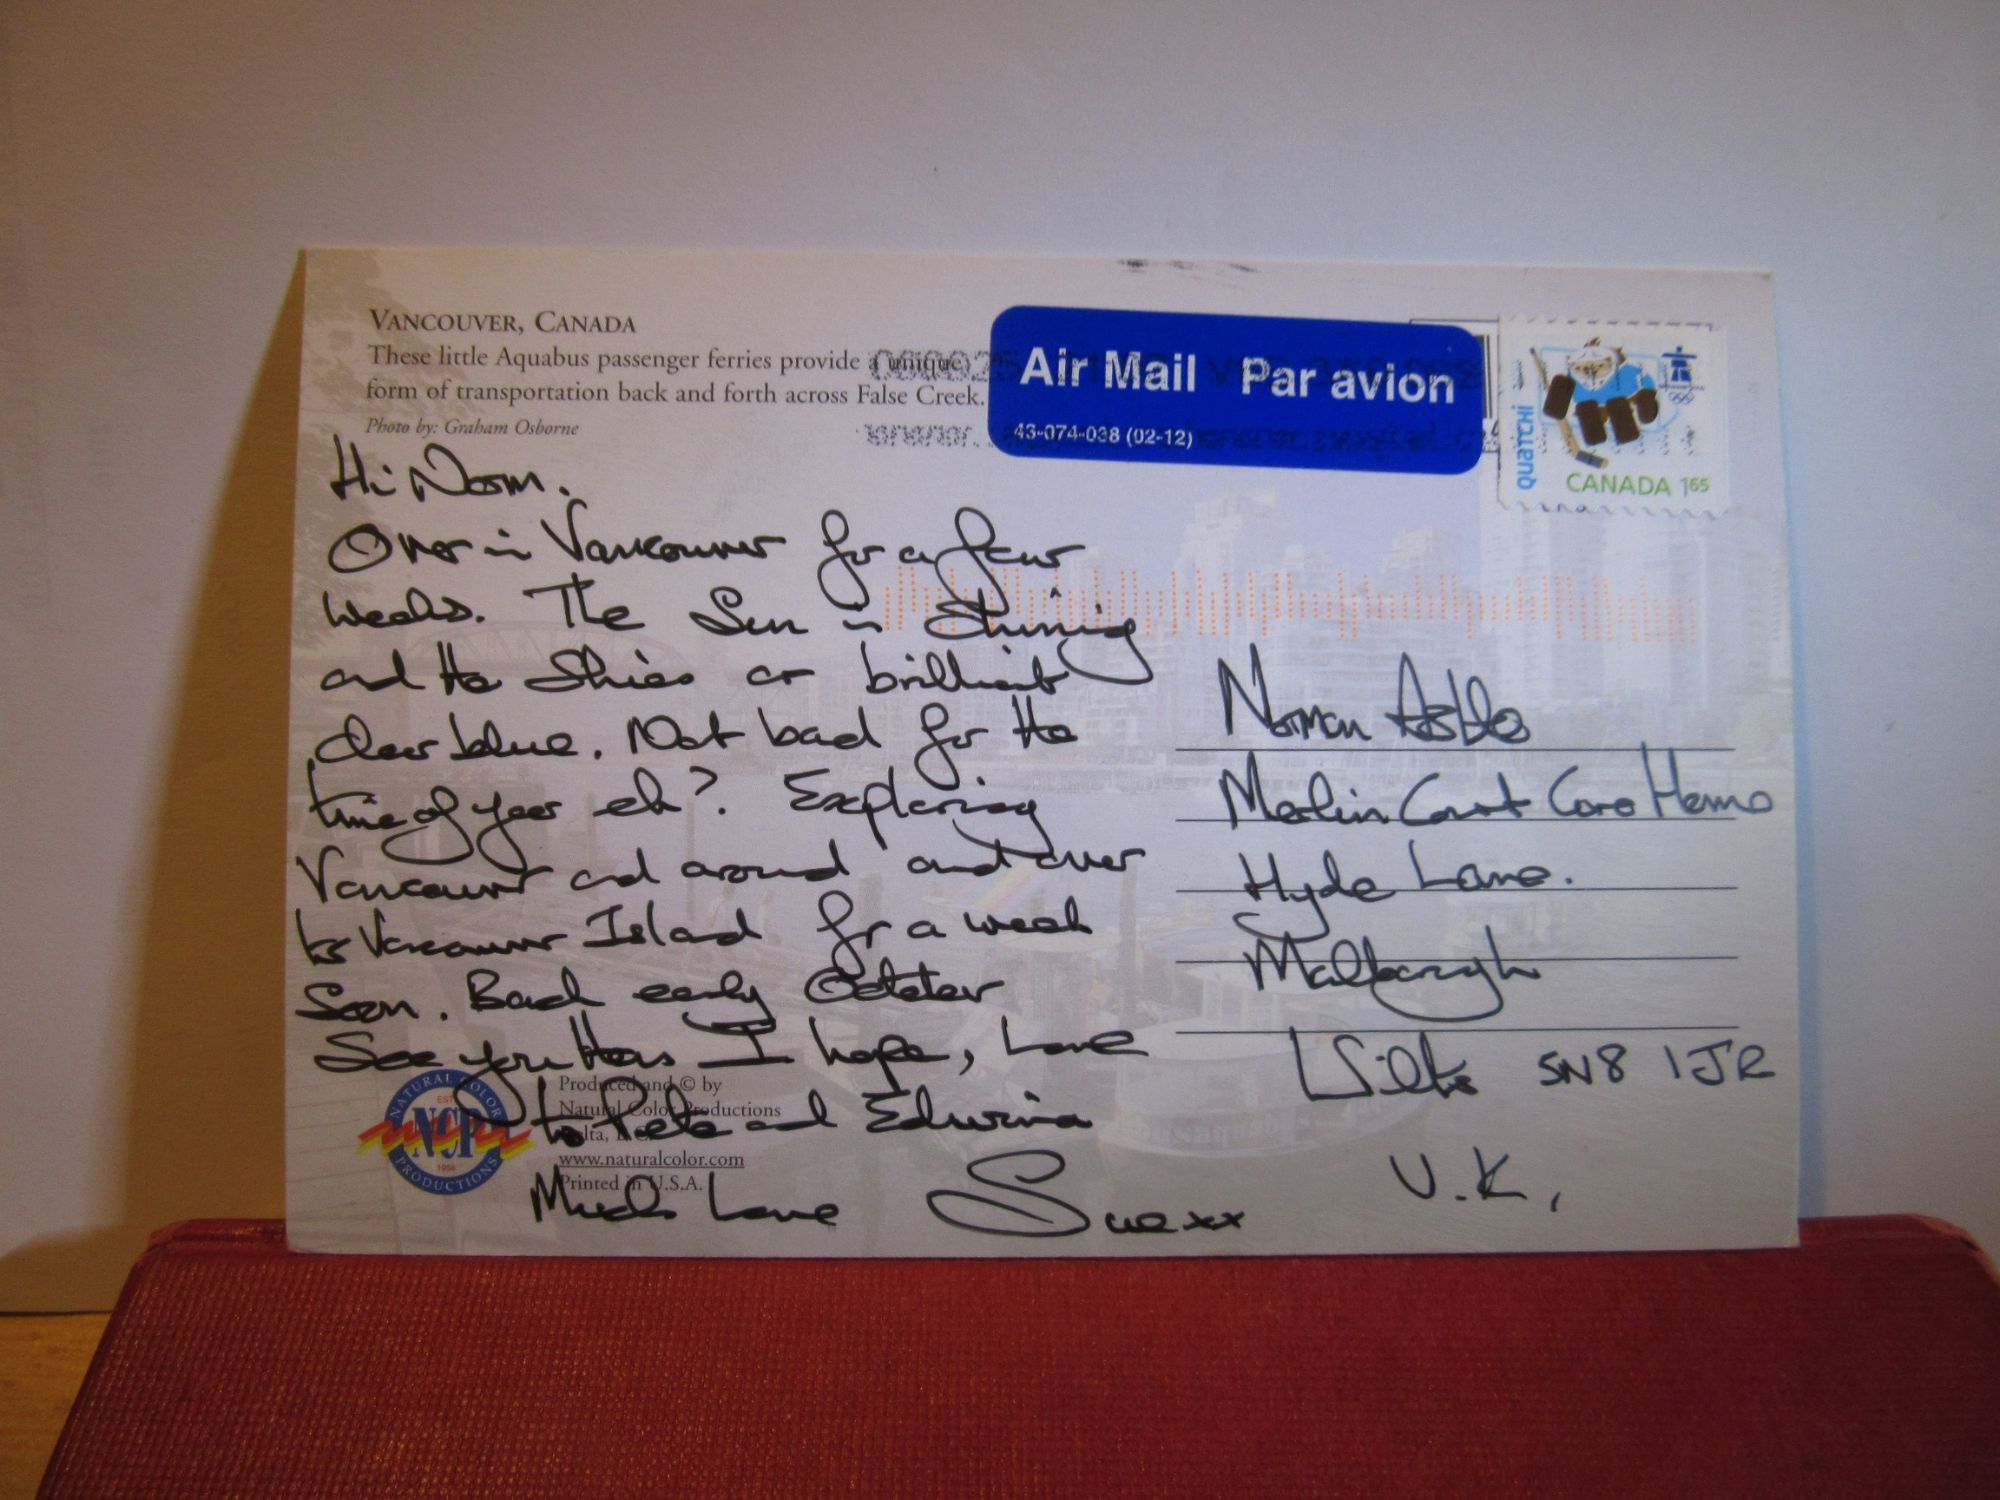 VANCOUVER, CANADA
These little Aquabus passenger ferries provide a unique
form of transportation back and forth across False Creek.
Photo by: Graham Osborne
Air Mail Par avion
43-074-038 (02-12)
QUATCHI
CANADA 1.65
Hi Norm.
Over in Vancouver for a few
weeks. The Sun is Shining
and the Skies are brilliant
clear blue. Not bad for the
time of year eh?. Exploring
Vancouver and around and over
to Vancouver Island for a week
Soon. Back early October
See you then I hope, Love
to Pete and Edwina
Much Love Sue xx
Norman
Merlin Court Care Home
Hyde Lane.
Malborough
Wilts SN8 1JR
U.K.
NATURAL COLOR
EST.
NCP
1956
PRODUCTIONS
Produced and © by
Natural Color Productions
Delta, B.C.
www.naturalcolor.com
Printed in U.S.A.